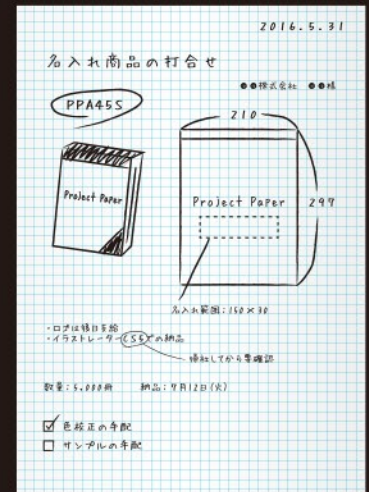 2016.5.31
名入れ商品の打合せ
●●株式会社 ●●様
PPA45S
210
Project Paper
Project Paper
297
名入れ範囲:150×30
・ロゴは後日支給
・イラストレーターCS5での納品
帰社してから要確認
数量:5,000冊 納品:9月12日(火)
☑ 色校正の手配
☐ サンプルの手配